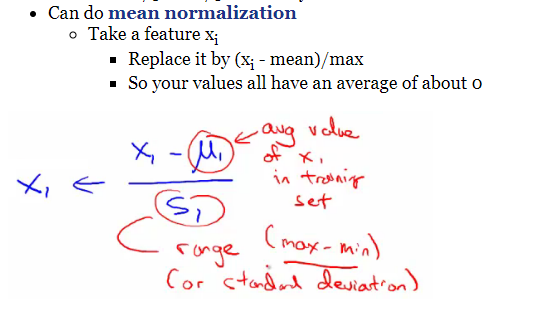 Can do mean normalization
Take a feature xi
Replace it by (xi - mean)/max
So your values all have an average of about 0
x₁ ← x₁ - μ₁ / s₁
avg value
of x₁
in training
set
range (max - min)
(or standard deviation)